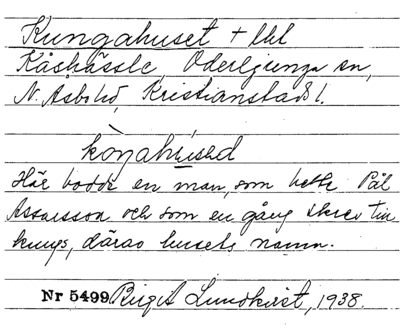 Kungahuset + lhl
Kåshässle, Oderljunga sn,
N. Åsbo hd, Kristianstads l.
kòŋahu̱səd
Här bodde en man, som hette Pål
Assarsson och som en gång skrev till
kungs, därav husets namn.
Nr 5499 Birgit Lundkvist, 1938.